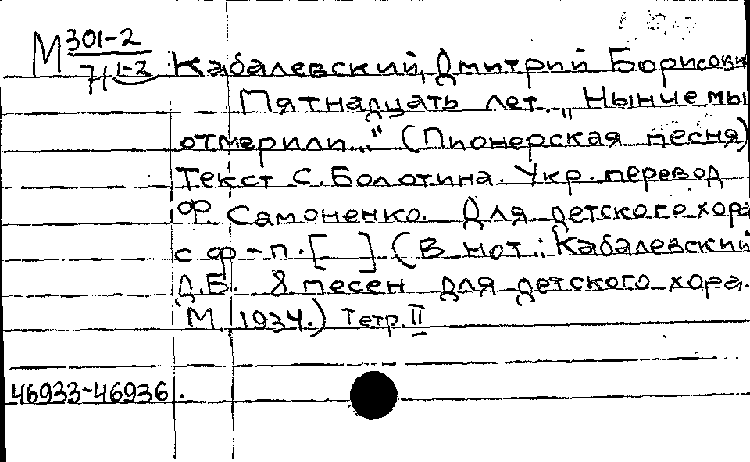 М 301-2
7/1-2
Кабалевский, Дмитрий Борисович
Пятнадцать лет. „Нынче мы
отмерили..." (Пионерская песня)
Текст С. Болотина. Укр. перевод
Ф Самоненко. Для детского хора
с ф-п. [ ] (В нот.: Кабалевский
Д.Б. 8 песен для детского хора.
М. 1934.) Тетр. II
46933-46936